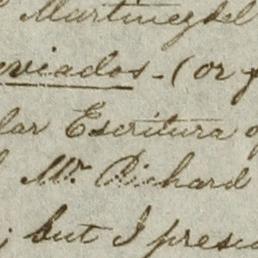 Martinez del
eviados - (or
lar Escritura
Mr. Richard
; but I presu